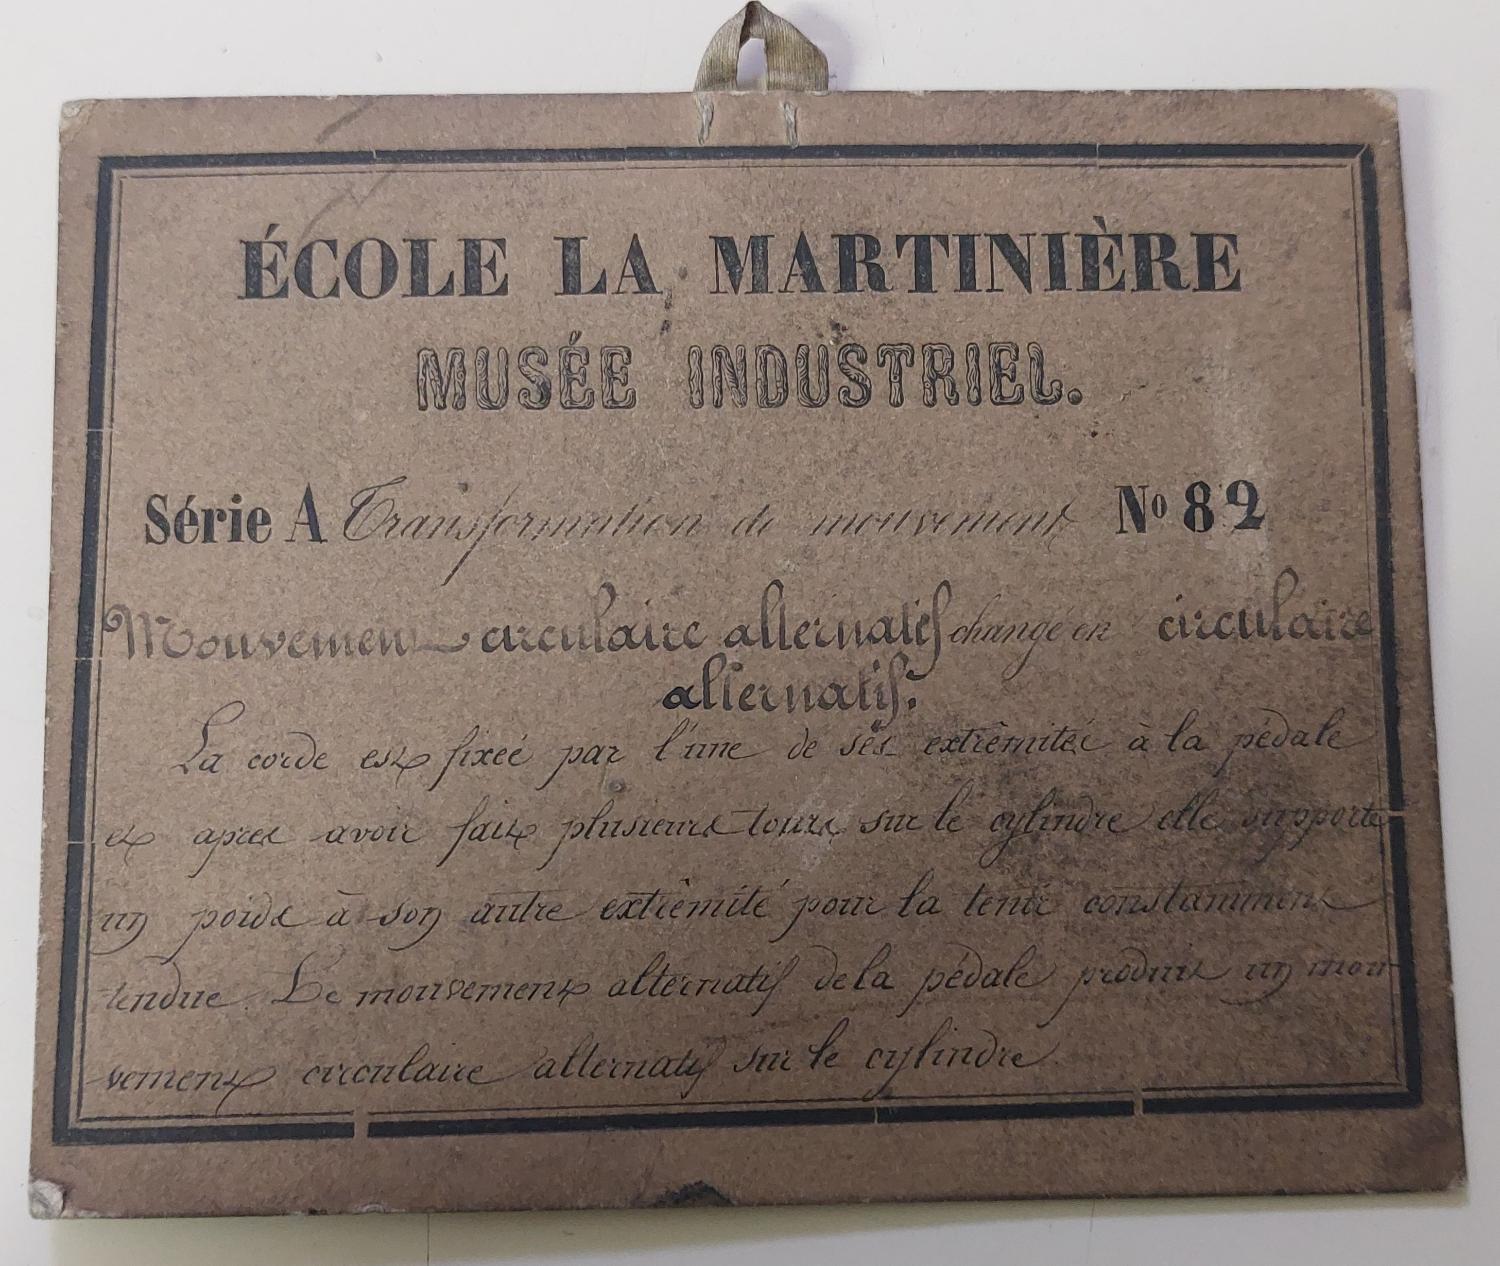 ÉCOLE LA MARTINIÈRE
MUSÉE INDUSTRIEL.
Série A Transformation de mouvement No 82
Mouvement circulaire alternatif changé en circulaire
alternatif.
La corde est fixeé par l'une de ses extrêmités à la pédale
et apres avoir fait plusieurs tours sur le cylindre elle supporte
un poids à son autre extrêmité pour la tenir constamment
tendue. Le mouvement alternatif de la pédale produit un mou-
vement circulaire alternatif sur le cylindre.